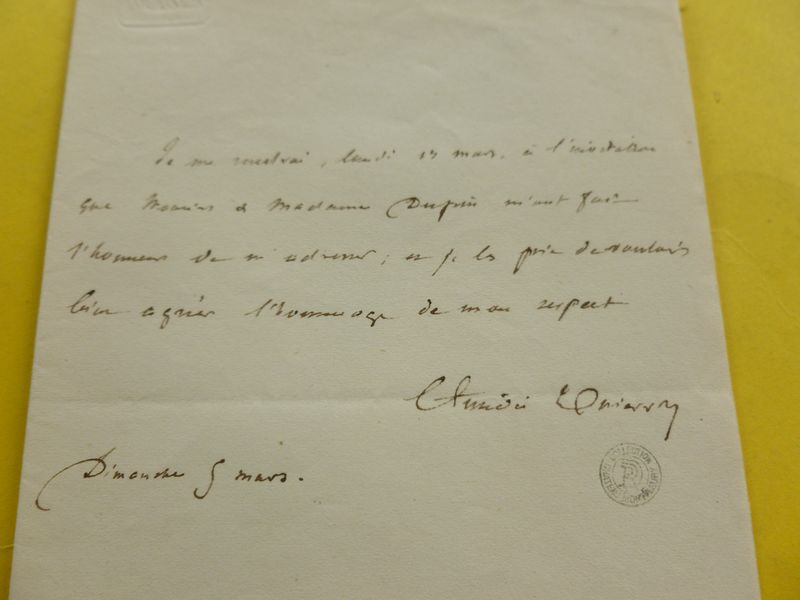 Je me rendrai, lundi 13 mars, à l'invitation
que Monsieur & Madame Dupin m'ont fait
l'honneur de m'adresser; et je les prie de vouloir
bien agréer l'hommage de mon respect
Amédée Thierry
Dimanche 5 mars.